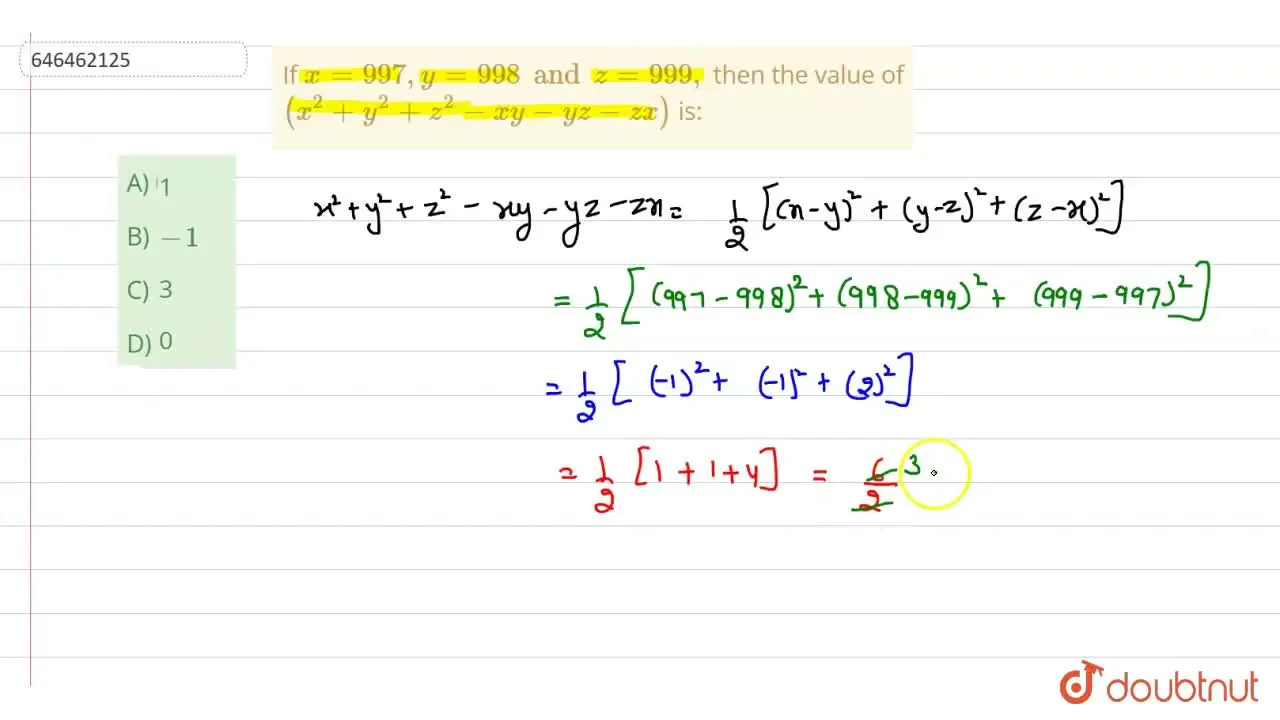 646462125
If x = 997, y = 998 and z = 999, then the value of
(x² + y² + z² − xy − yz − zx) is:
A) 1
B) −1
C) 3
D) 0
x² + y² + z² − xy − yz − zx = 1/2 [(x−y)² + (y−z)² + (z−x)²]
= 1/2 [(997 − 998)² + (998 − 999)² + (999 − 997)²]
= 1/2 [(−1)² + (−1)² + (2)²]
= 1/2 [1 + 1 + 4] = 6/2 3
doubtnut